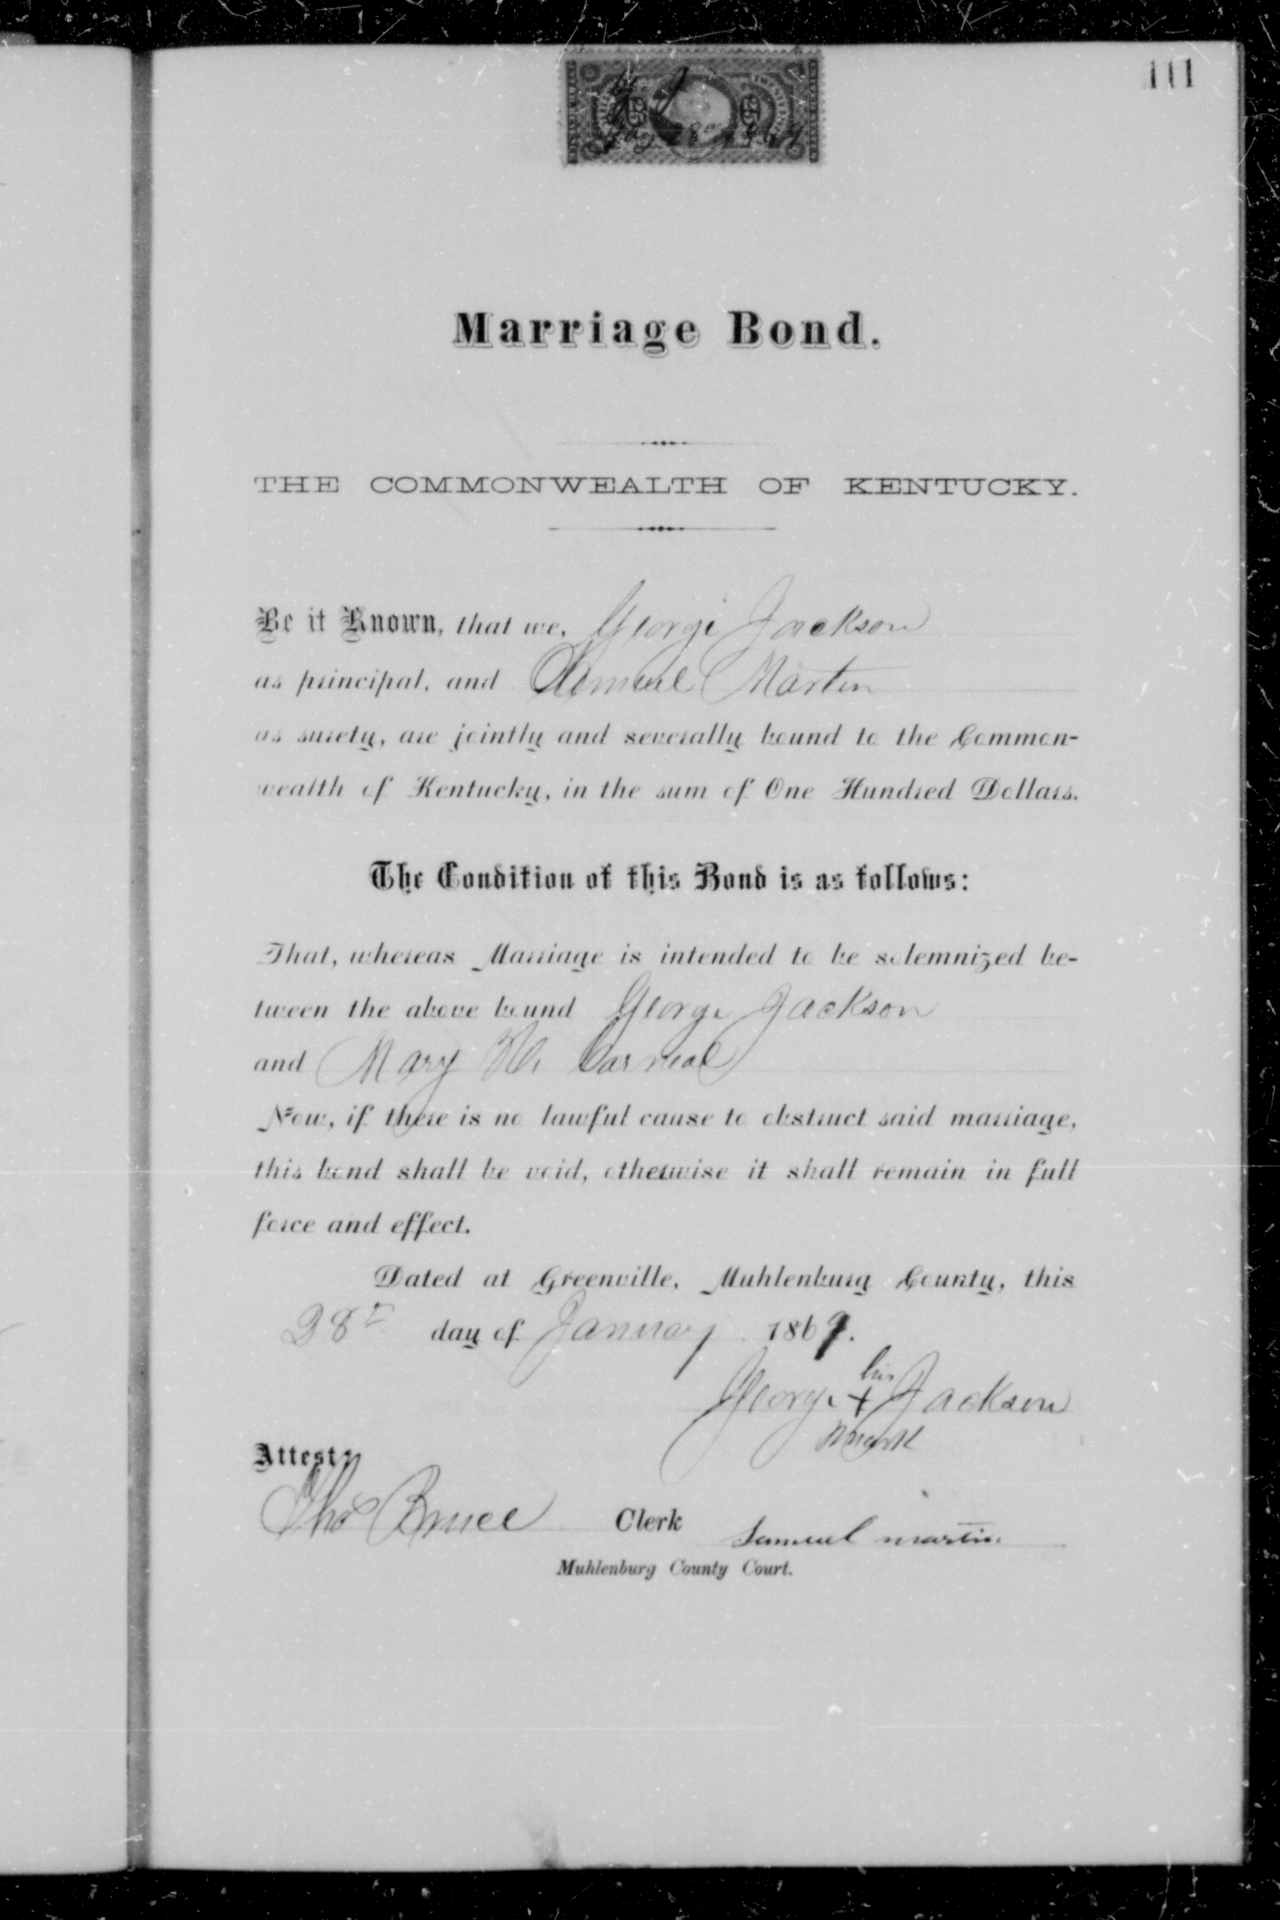 111
Jay 28th 1869
Marriage Bond.
THE COMMONWEALTH OF KENTUCKY.
Be it Known, that we, George Jackson
as principal, and Samuel Martin
as surety, are jointly and severally bound to the Common-
wealth of Kentucky, in the sum of One Hundred Dollars.
The Condition of this Bond is as follows:
That, whereas Marriage is intended to be solemnized be-
tween the above bound George Jackson
and Mary Carneal
Now, if there is no lawful cause to obstruct said marriage,
this bond shall be void, otherwise it shall remain in full
force and effect.
Dated at Greenville, Muhlenburg County, this
28th day of January 1869.
his
George + Jackson
mark
Attest,
Thos Bruce Clerk Samuel martin
Muhlenburg County Court.